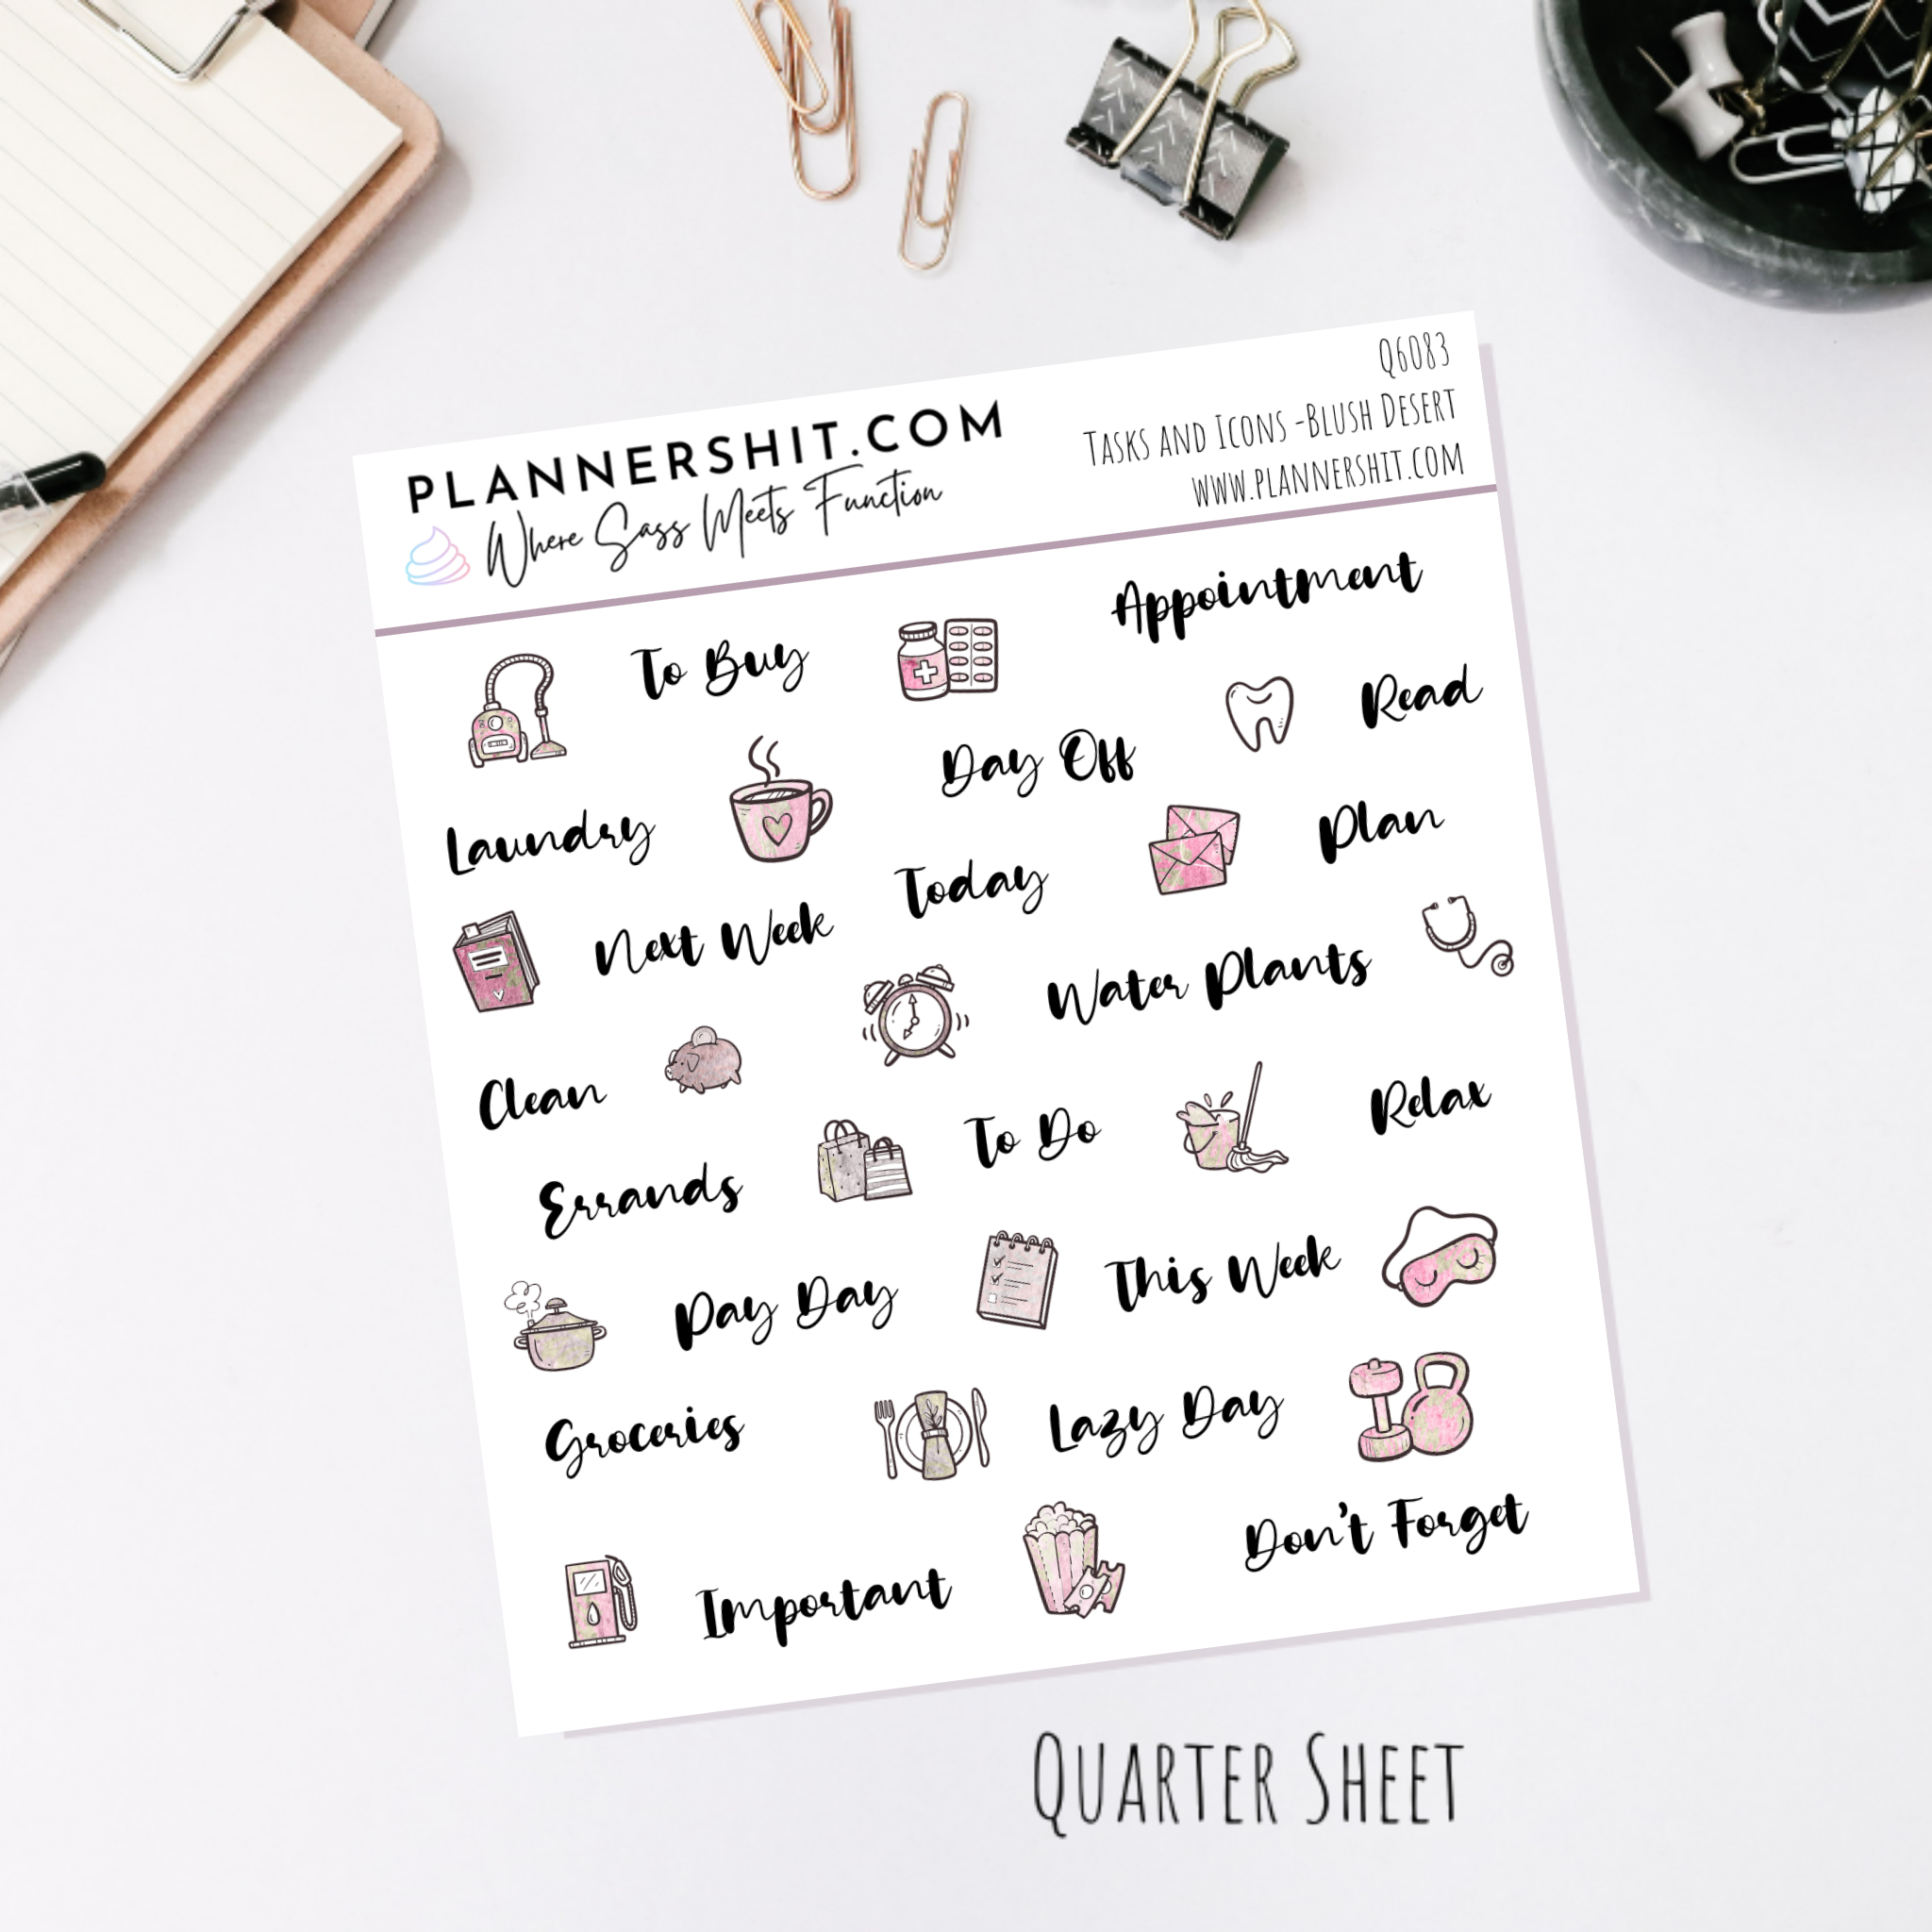 PLANNERSHIT.COM
Where Sass Meets Function
Q6083
Tasks and Icons -Blush Desert
www.plannershit.com
To Buy
Appointment
Read
Day Off
Laundry
Plan
Today
Next Week
Water Plants
Clean
To Do
Relax
Errands
This Week
Pay Day
Lazy Day
Groceries
Don't Forget
Important
Quarter Sheet